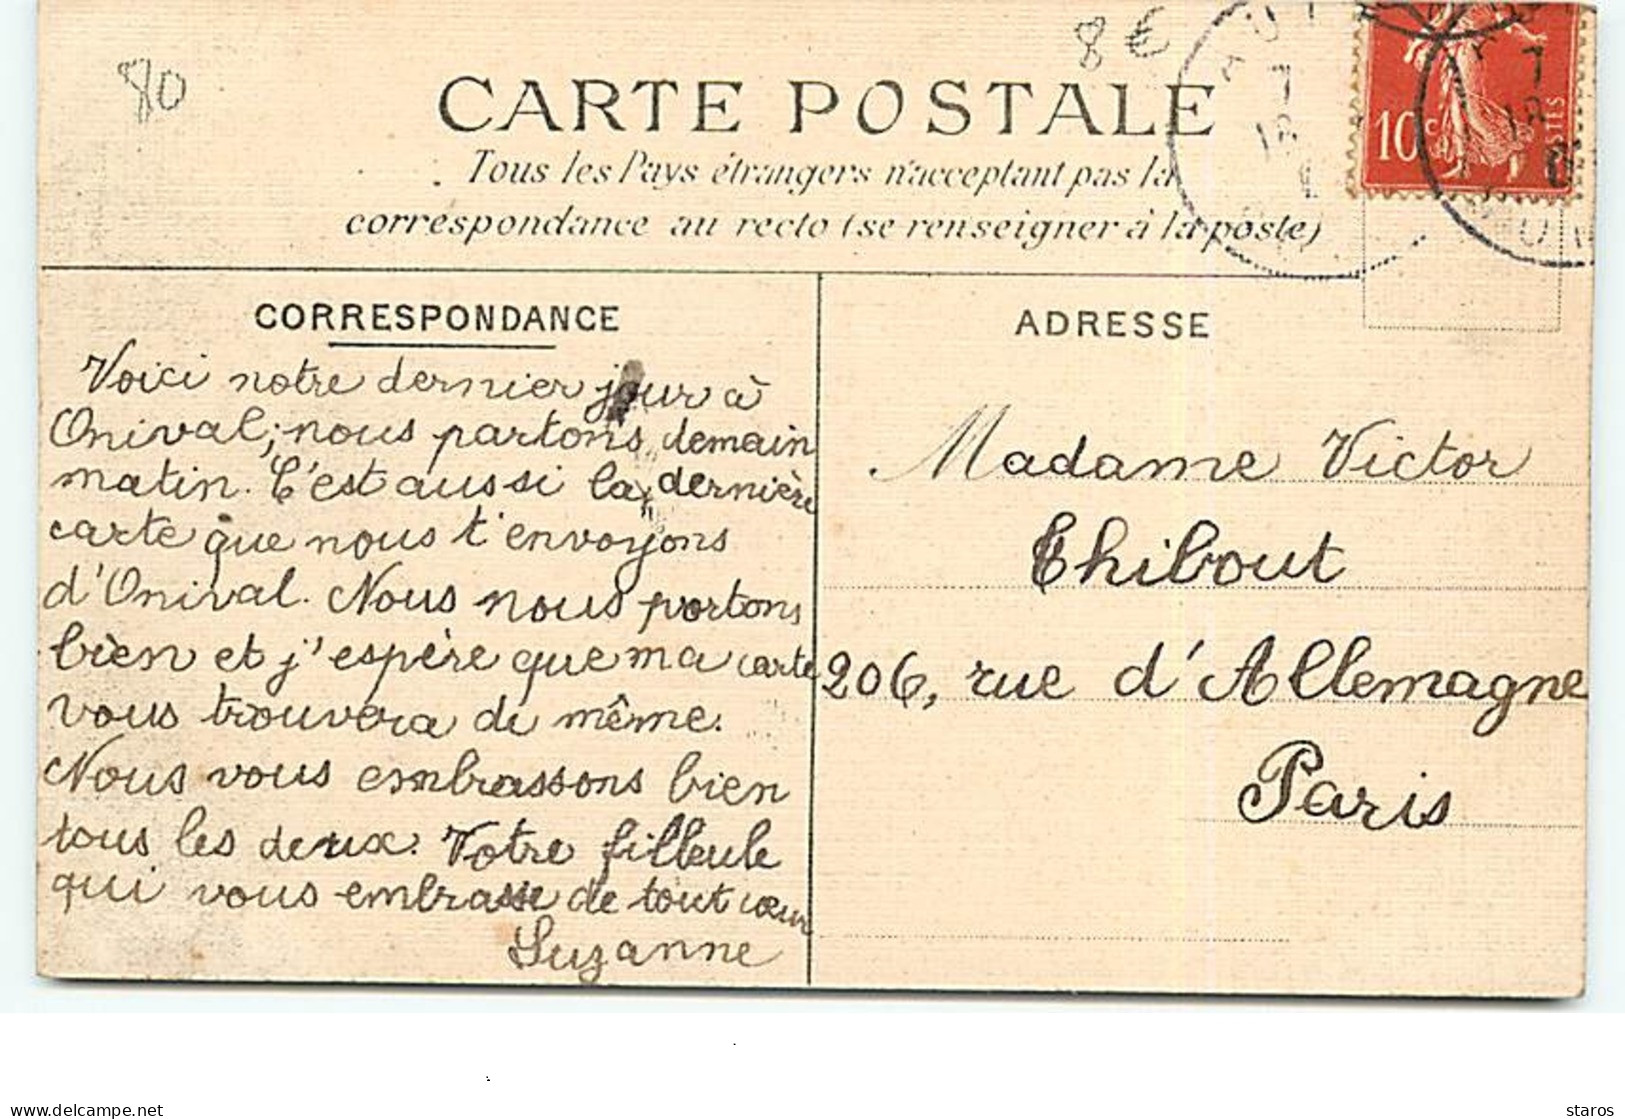 80
8 €
CARTE POSTALE
Tous les Pays étrangers n'acceptant pas la
correspondance au recto (se renseigner à la poste)
10 c
POSTES
CORRESPONDANCE
Voici notre dernier jour à
Onival; nous partons demain
matin. C'est aussi la dernière
carte que nous t'envoyons
d'Onival. Nous nous portons
bien et j'espère que ma carte
vous trouvera de même.
Nous vous embrassons bien
tous les deux. Votre filleule
qui vous embrasse de tout cœur
Suzanne
ADRESSE
Madame Victor
Thibout
206, rue d'Allemagne
Paris
delcampe.net
staros